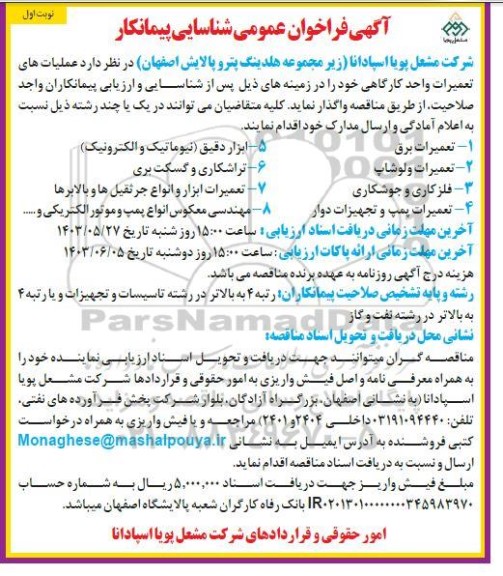 نوبت اول
مشعل پویا
آگهی فراخوان عمومی شناسایی پیمانکار
شرکت مشعل پویا اسپادانا (زیر مجموعه هلدینگ پترو پالایش اصفهان) در نظر دارد عملیات های
تعمیرات واحد کارگاهی خود را در زمینه های ذیل پس از شناسایی و ارزیابی پیمانکاران واجد
صلاحیت، از طریق مناقصه واگذار نماید. کلیه متقاضیان می توانند در یک یا چند رشته ذیل نسبت
به اعلام آمادگی و ارسال مدارک خود اقدام نمایند.
۱- تعمیرات برق ۵- ابزار دقیق (نیوماتیک و الکترونیک)
۲- تعمیرات ولوشاپ ۶- تراشکاری و گسکت بری
۳- فلزکاری و جوشکاری ۷- تعمیرات ابزار و انواع جرثقیل ها و بالابرها
۴- تعمیرات پمپ و تجهیزات دوار ۸- مهندسی معکوس انواع پمپ و موتور الکتریکی و.....
آخرین مهلت زمانی دریافت اسناد ارزیابی: ساعت ۱۵:۰۰ روز شنبه تاریخ ۱۴۰۳/۰۵/۲۷
آخرین مهلت زمانی ارائه پاکات ارزیابی: ساعت ۱۵:۰۰ روز دوشنبه تاریخ ۱۴۰۳/۰۶/۰۵
هزینه درج آگهی روزنامه به عهده برنده مناقصه می باشد.
رشته و پایه تشخیص صلاحیت پیمانکاران: رتبه ۴ به بالاتر در رشته تاسیسات و تجهیزات و یا رتبه ۴
به بالاتر در رشته نفت و گاز
ParsNamadData
نشانی محل دریافت و تحویل اسناد مناقصه:
مناقصه گران میتوانند جهت دریافت و تحویل اسناد ارزیابی نماینده خود را
به همراه معرفی نامه و اصل فیش واریزی به امور حقوقی و قراردادها شرکت مشعل پویا
اسپادانا (به نشانی اصفهان، بزرگراه آزادگان، بلوار شرکت پخش فرآورده های نفتی،
تلفن: ۰۳۱۹۱۰۹۴۴۴۰ داخلی ۲۴۰۴ و ۲۴۰۱) مراجعه و یا فیش واریزی به همراه درخواست
کتبی فروشنده به آدرس ایمیل به نشانی Monaghese@mashalpouya.ir
ارسال و نسبت به دریافت اسناد مناقصه اقدام نماید.
مبلغ فیش واریز جهت دریافت اسناد ۵,۰۰۰,۰۰۰ ریال به شماره حساب
بانک رفاه کارگران شعبه پالایشگاه اصفهان میباشد.
امور حقوقی و قراردادهای شرکت مشعل پویا اسپادانا